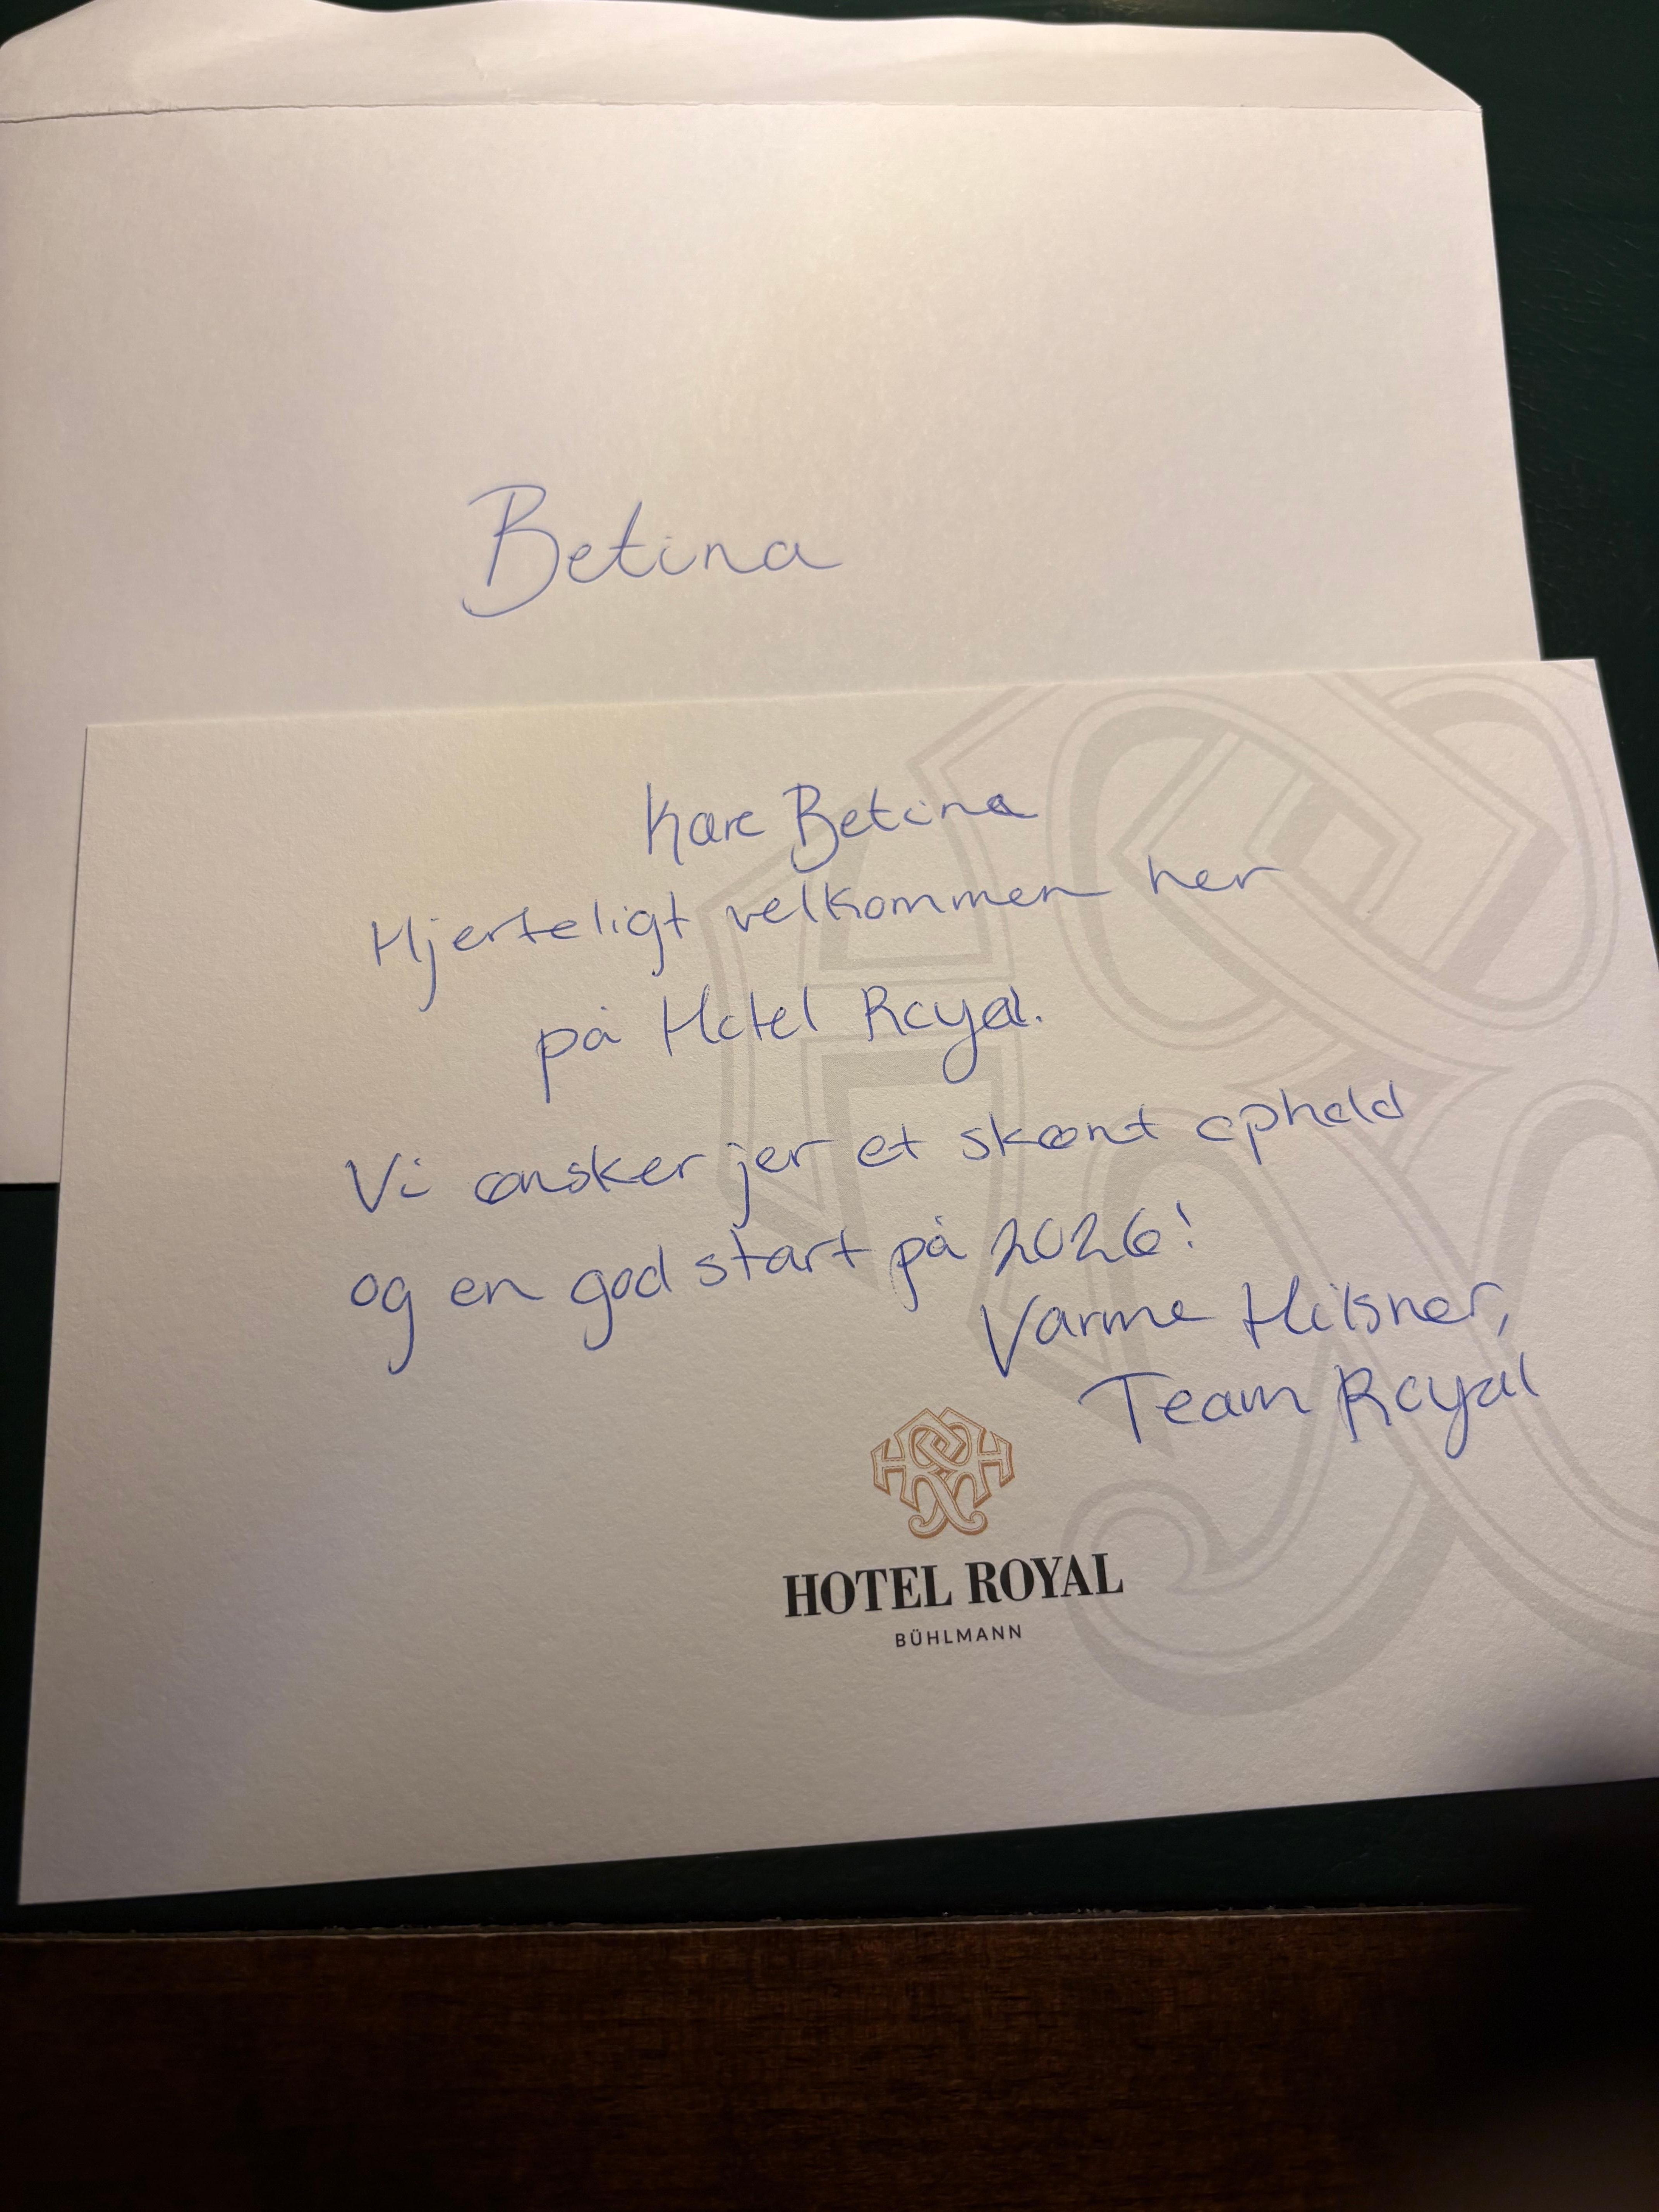 Betina
Kære Betina
Hjerteligt velkommen her
på Hotel Royal.
Vi ønsker jer et skønt ophold
og en god start på 2026!
Varme Hilsner,
Team Royal
HOTEL ROYAL
BÜHLMANN